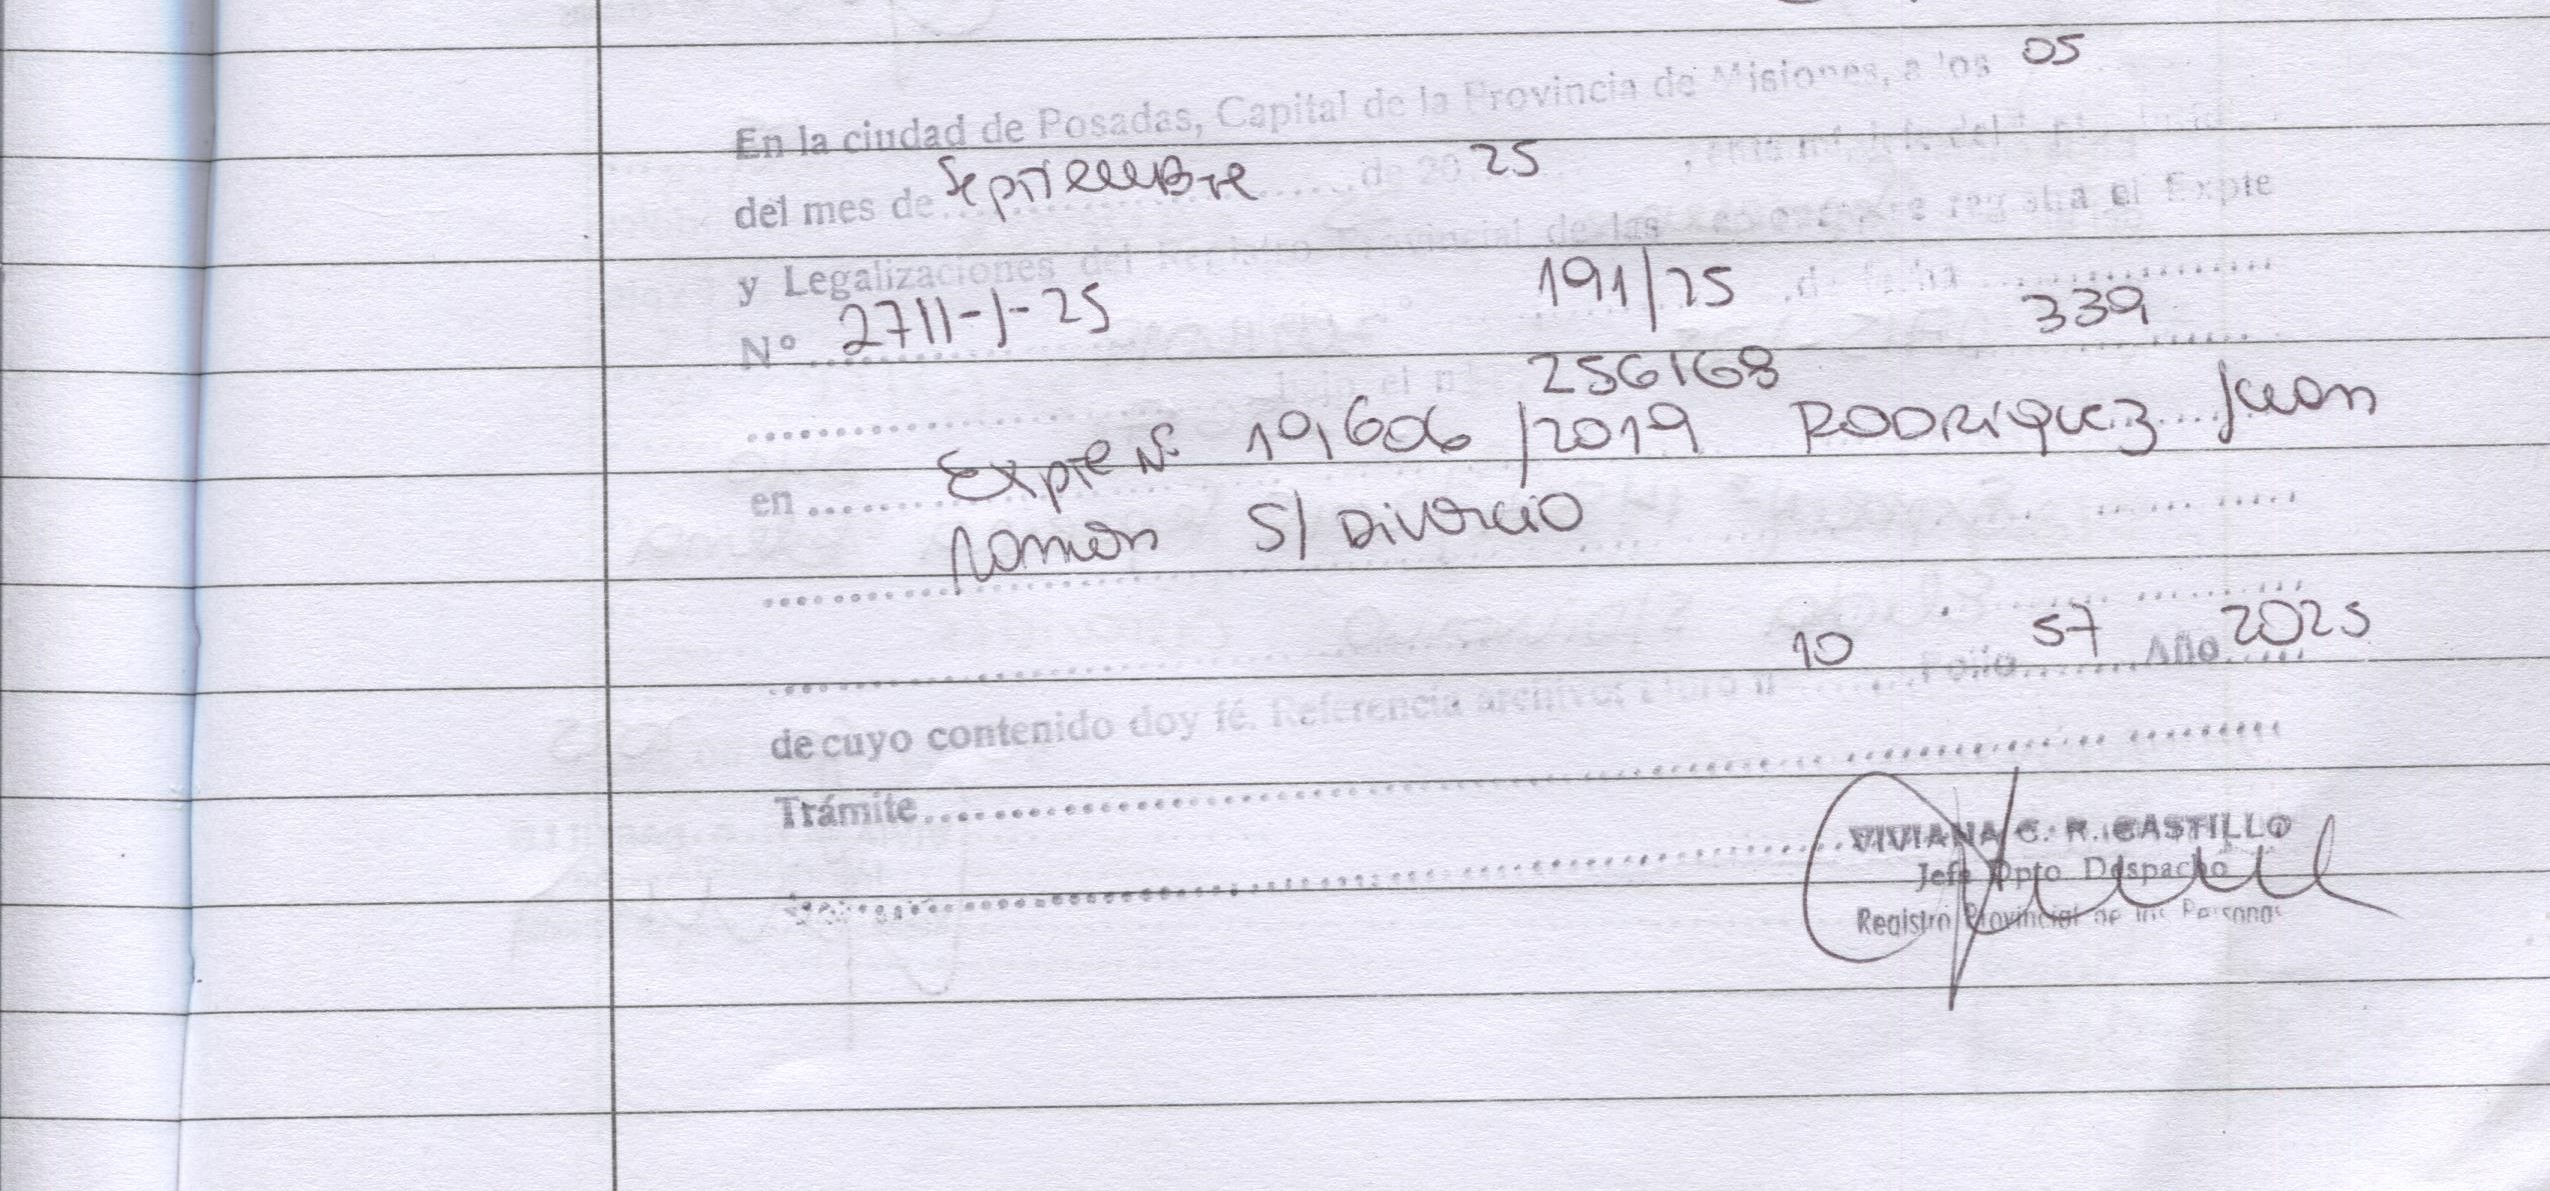 En la ciudad de Posadas, Capital de la Provincia de Misiones, a los 05
del mes de Septiembre de 20 25
y Legalizaciones del Registro Provincial de las registra el Expte
Nº 2711-J-25 191/25 339
256168
en Expte Nº 19,606/2019 RODRIGUEZ Juan
Ramon S/ Divorcio
de cuyo contenido doy fé. Referencia archivo: Libro nº 10 Folio 57 Año 2025
Trámite
VIVIANA C. R. CASTILLO
Jefe Dpto Despacho
Registro Provincial de las Personas